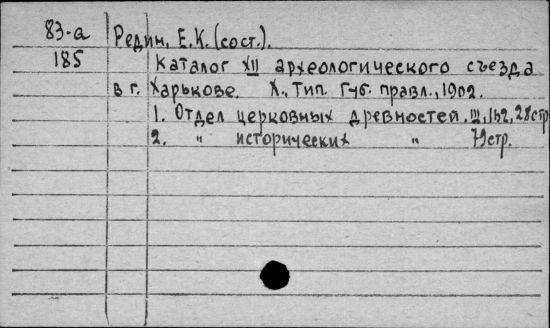 83-а Редин, Е.К. (сост.).
185 Каталог XII археологического съезда
в г. Харькове. Х., Тип. Губ. правл., 1902.
1. Отдел церковных древностей. III, 152, 28 стр
2. " исторических " 79 стр.